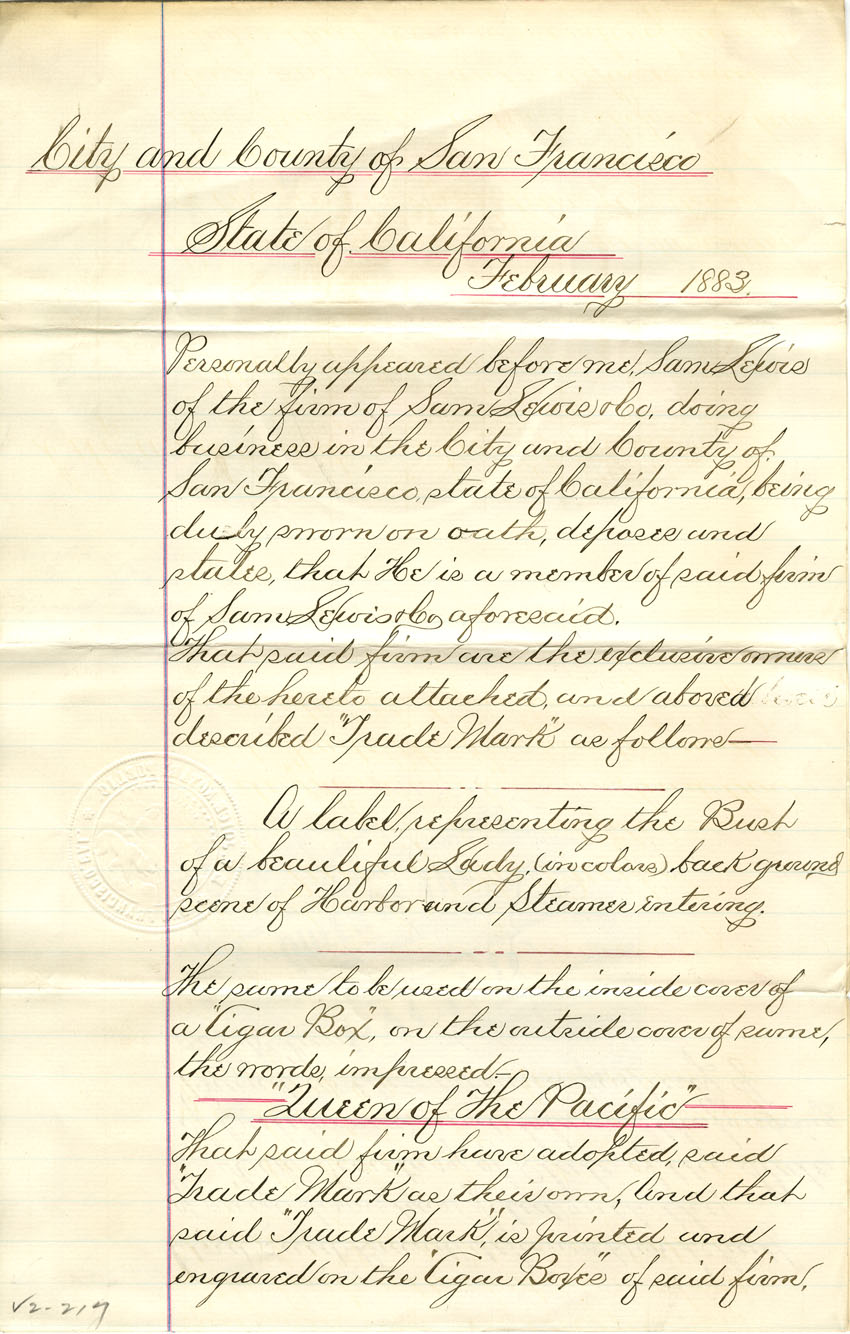 City and County of San Francisco
State of California
February 1883.
Personally appeared before me, Sam Lewis
of the firm of Sam Lewis & Co, doing
business in the City and County of
San Francisco, state of California, being
duely sworn on oath, deposes and
states, that He is a member of said firm
of Sam Lewis & Co, aforesaid.
That said firm are the exclusive owners
of the hereto attached, and above
described "Trade Mark" as follows—
A label, representing the Bust
of a beautiful Lady, (in colors), back ground
scene of Harbor and Steamer entering.
The same to be used on the inside cover of
a "Cigar Box", on the outside cover of same,
the words, impressed—
"Queen of The Pacific"
That said firm have adopted, said
"Trade Mark" as their own, And that
said "Trade Mark", is printed and
engraved on the "Cigar Boxes" of said firm.
V2-217